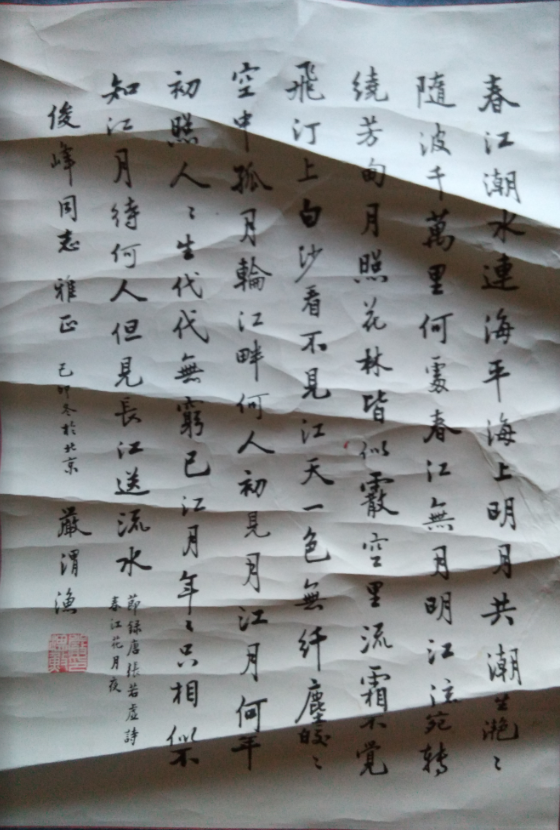 春江潮水連海平海上明月共潮生灧〻
隨波千萬里何處春江無月明江流宛轉
繞芳甸月照花林皆似霰空里流霜不覺
飛汀上白沙看不見江天一色無纤塵皎〻
空中孤月輪江畔何人初見月江月何年
初照人〻生代代無窮已江月年〻只相似不
知江月待何人但見長江送流水
節録唐張若虛詩
春江花月夜
俊峰同志雅正 己卯冬於北京 嚴渭漁